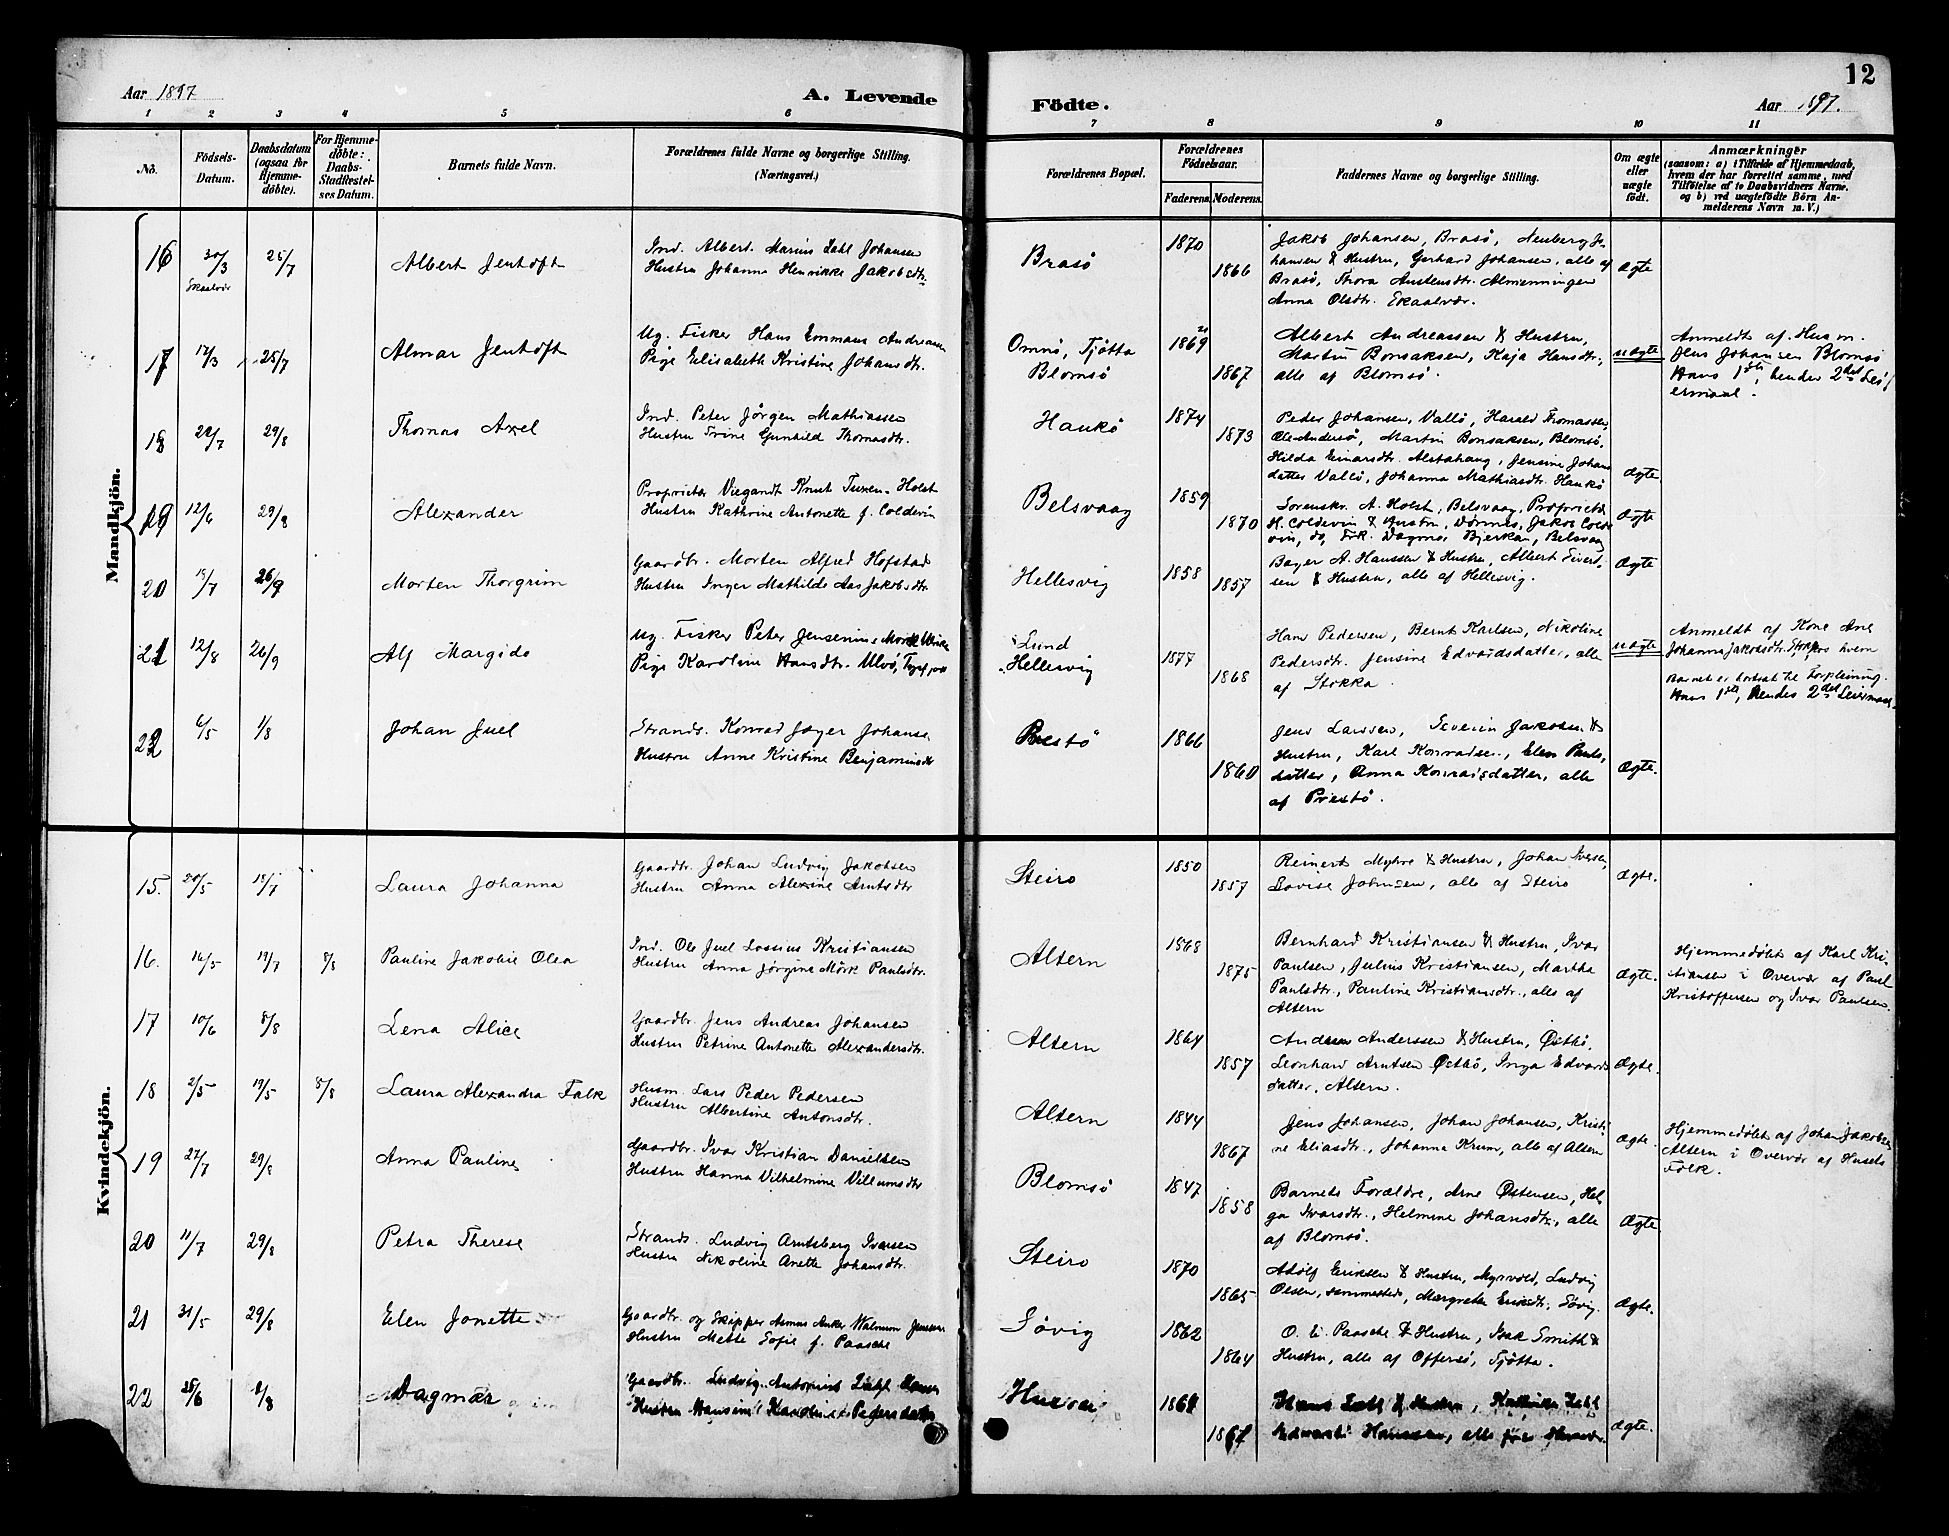 12
Aar 1897
A. Levende
Fødte.
Aar 1897.
1 2 3 4 5 6 7 8 9 10 11
No.
Fødsels-Datum.
Daabsdatum (ogsaa for Hjemmedøbte).
For Hjemmedøbte: Daabs-Stadfæstelses Datum.
Barnets fulde Navn.
Forældrenes fulde Navne og borgerlige Stilling. (Næringsvei.)
Forældrenes Bopæl.
Forældrenes Fødselsaar.
Faderens. Moderens.
Faddernes Navne og borgerlige Stilling.
Om ægte eller uægte født.
Anmærkninger
(saasom: a) i Tilfælde af Hjemmedaab,
hvem der har forrettet samme, med
Tilføielse af to Daabsvidners Navne.
og b) ved uægtefødte Børn An-
melderens Navn m. V.)
Mandkjön.
16 30/3 25/7 Albert Jentoft
Ind. Albert Marius Zahl Johansen
Hustru Johanna Henrikke Jakobsdtr.
Brasø 1870 1866
Jakob Johansen, Brasø, Neuberg Jo-
hansen & Hustru, Gerhard Johansen, alle af
Brasø, Thora Austensdtr. Almenningen
Anna Olsdtr. Skaalvær.
Ægte
Skaalvær
17 12/3 25/7 Almar Jentoft
Ug. Fisker Hans Emmans Andreassen
Pige Elisabeth Kristine Johansdtr.
Omnø, Tjøtta
Blomsø
1869 1867
Albert Andreassen & Hustru,
Martin Bonsaksen, Kaja Hansdtr.,
alle af Blomsø.
uægte
Anmeldt af Husm.
Jens Johansen Blomsø
Hans 1ste, hendes 2det Leier-
ermaal.
18 22/7 29/8 Thomas Axel
Ind. Peter Jørgen Mathiassen
Hustru Trine Gunhild Thomasdtr.
Haukø 1874 1873
Peder Johansen, Vallø, Harald Thomassen,
Ole Andersø, Martin Bonsaksen, Blomsø,
Hilda Einarsdtr. Alstahaug, Jensine Johans
datter Vallø, Johanna Mathiasdtr. Haukø
Ægte
19 12/6 29/8 Alexander
Proprietær Viegandt Knut Tuxen Holst
Hustru Kathrine Antonette f. Coldevin
Belsvaag 1859 1870
Sorenskr. A. Holst, Belsvaag, Proprietær
H. Coldevin & Hustru, Dønnes, Jakob Colde
vin, do, Frk. Dagmar Bjerkan, Belsvaag
Ægte
20 15/7 26/9 Morten Thorgrim
Gaardbr. Morten Alfred Hofstad
Hustru Inger Mathilde Aas Jakobsdtr.
Hellesvig 1858 1857
A. Hanssen & Hustru, Albert Sivert-
sen & Hustru, alle af Hellesvig.
Ægte
21 12/8 26/9 Alf Margido
Ug. Fisker Peter Jensenius
Pige Karoline Hansdtr. Ulvø,
Lund
Hellesvig
1877 1868
Hans Pedersen, Bernt Karlsen, Nikoline
Pedersdtr. Jensine Edvardsdatter, alle
af Stokka.
uægte
Anmeldt af Kone Ane
Johanna Jakobsdtr. hvem
Barnet er bortsat til Forpleining.
Hans 1ste, hendes 2det Leiermaal.
22 6/5 1/8 Johan Juel
Strands. Konrad Jæger Johansen
Hustru Anne Kristine Benjaminsdtr
Prestø 1866 1860
Jens Larssen, Severin Jakobsen &
Hustru, Karl Konradsen, Elen Pauls-
datter, Anna Konradsdatter, alle
af Prestø.
Ægte.
Kvindekjön.
15. 20/5 18/7 Laura Johanna
Gaardbr. Johan Ludvig Jakobsen
Hustru Anna Alexine Arntsdtr
Steiro 1850 1857
Reinert Myhre & Hustru, Johan Iversen
Lovise Johnsen, alle af Steiro
Ægte.
16. 16/5 19/7 8/8 Pauline Jakobie Olea
Ind. Ole Juel Lossius Kristiansen
Hustru Anna Jørgine Mørk Paulsdtr.
Altern 1868 1875
Bernhard Kristiansen & Hustru, Ivar
Paulsen, Julius Kristiansen, Martha
Paulsdtr., Pauline Kristiansdtr., alle af
Altern
Ægte.
Hjemmedøbt af Karl Kri-
stiansen i Overvær af Paul
Kristoffersen og Ivar Paulsen.
17 10/6 8/8 Lena Alice
Gaardbr. Jens Andreas Johansen
Hustru Petrine Antonette Alexandersdtr.
Altern 1864 1857
Anderssen & Hustru, Østbø,
Leonhard Arntsen Østbø, Inga Edvards
datter, Altern.
Ægte.
18 2/5 19/5 8/8 Laura Alexandra Falk
Husm. Lars Peder Pedersen
Hustru Albertine Antonsdtr.
Altern 1844 1867
Jens Johansen, Johan Johansen, Kristi-
ne Eliasdtr., Johanna Krum, alle af Altern
Ægte.
Hjemmedøbt af Johan Jakobsen
Altern i Overvær af Husets
Folk.
19 27/7 29/8 Anna Pauline
Gaardbr. Ivar Kristian Danielsen
Hustru Hanna Vilhelmine Villumsdtr
Blomsø 1847 1858
Barnets Forældre, Arne Østensen, Hel-
ga Ivarsdtr., Helmine Johansdtr., alle
af Blomsø.
Ægte
20 11/7 29/8 Petra Therese
Strands. Ludvig Arntsberg Iversen
Hustru Nikoline Anette Johansdtr.
Steiro 1870 1865
Adolf Eriksen & Hustru, Myrvold, Ludvig
Olsen, sammesteds, Margrete Eriksdtr. Søvig.
Ægte.
21 31/5 29/8 Elen Jonette
Gaardbr. og Skipper Asmus Anker Walnum Jensen
Hustru Mette Sofie f. Paasche
Søvig 1862 1864
O. E. Paasche & Hustru, Isak Smith &
Hustru, alle af Offersø, Tjøtta.
22 25/6 8/8 Dagmar
Gaardbr. Ludvig Antonius Zahl Hansen
Hustru Hansine Karoline Pedersdatter
Husvær
Zahl & Hustru, Zahl
Edvard Hanssen, alle
Ægte.